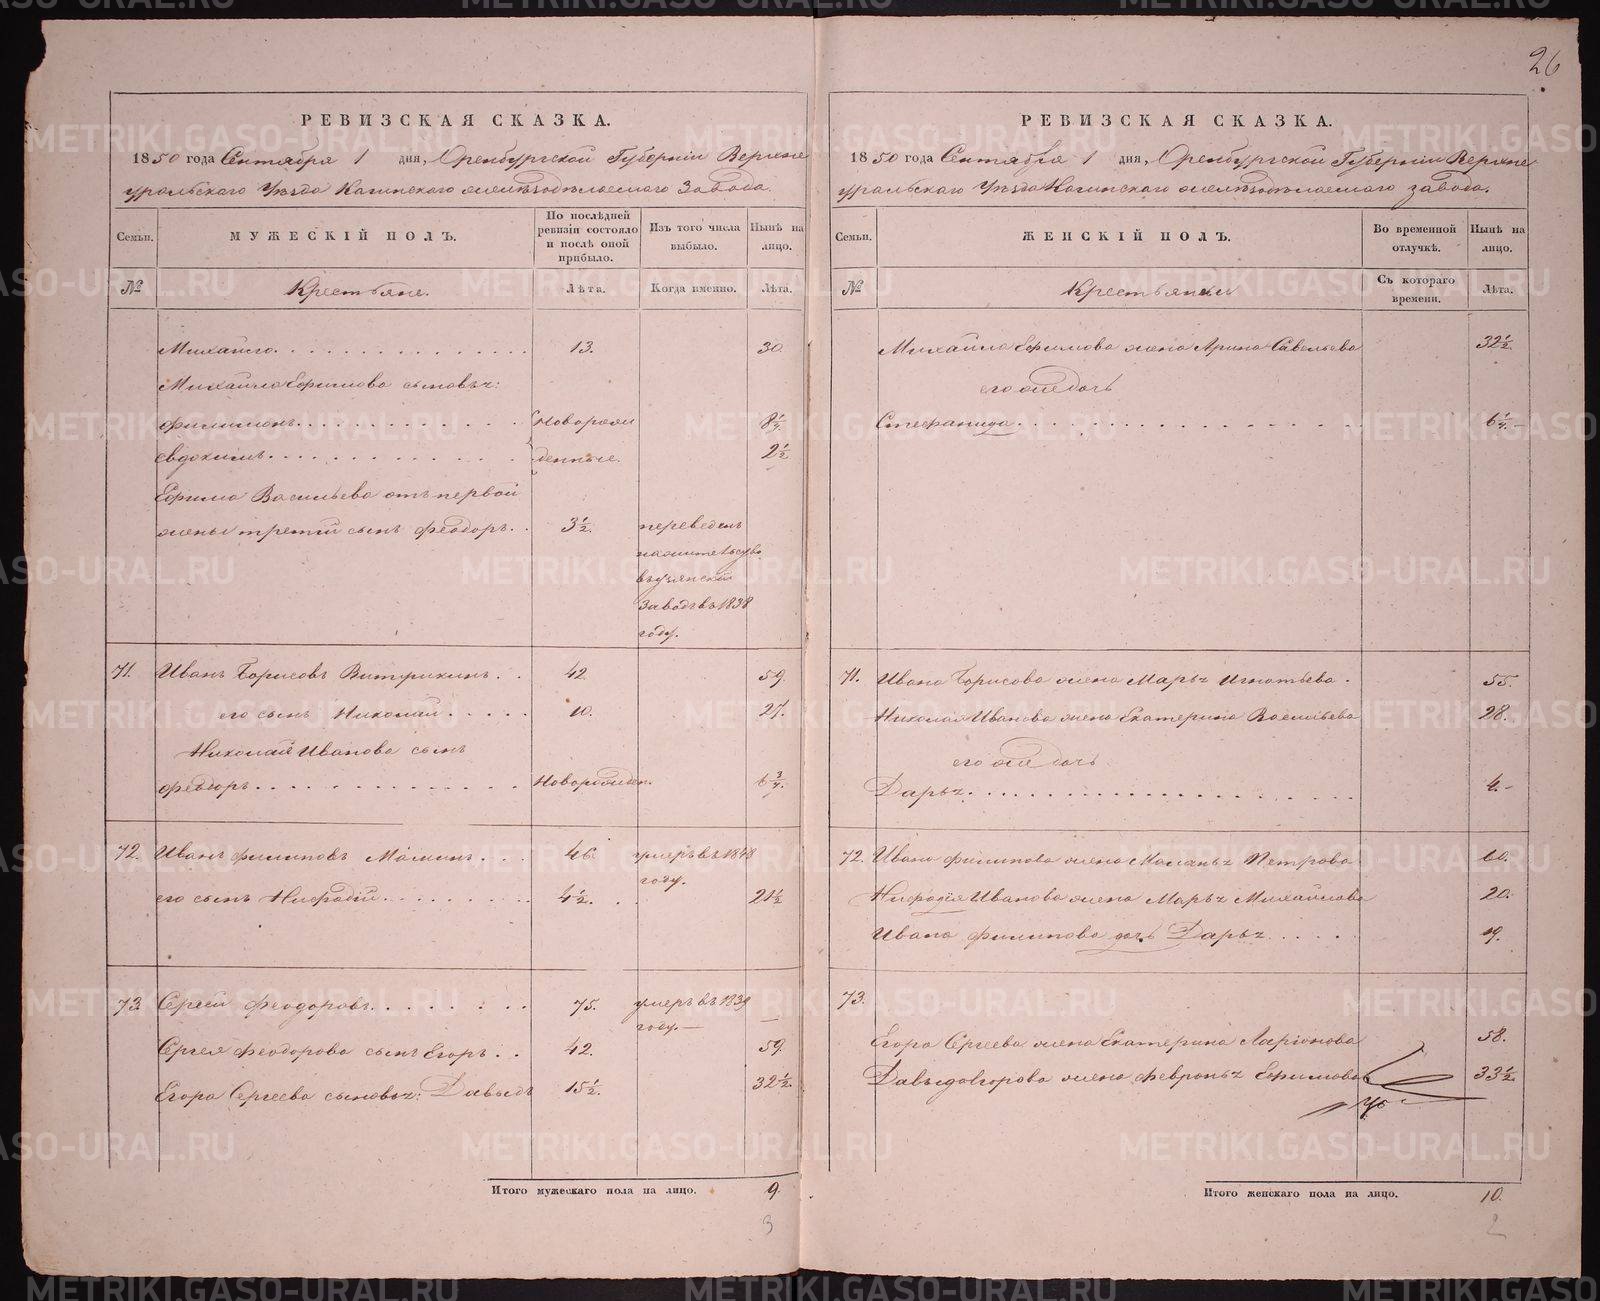 26
РЕВИЗСКАЯ СКАЗКА.
1850 года Сентября 1 дня, Оренбургской Губерніи Верхне
уральскаго Уѣзда Кагинскаго желѣзодѣлаемаго Завода.
Семьи.
МУЖЕСКІЙ ПОЛЪ.
По послѣдней ревизіи состояло и послѣ оной прибыло.
Изъ того числа выбыло.
Нынѣ на лицо.
№
Крестьяне.
Лѣта.
Когда именно.
Лѣта.
Михайло. 13. 30.
Михайла Ефимова сыновья:
Филимонъ. Новорож 8 1/4
Евдокимъ. денные. 2 1/2
Ефима Васильева отъ первой
жены третій сынъ Феодоръ. 3 1/2. переведенъ
на жительство
въ узянскій
Заводъ въ 1838
году.
71. Иванъ Борисовъ Витушкинъ. 42. 59.
его сынъ Николай. 10. 27.
Николая Иванова сынъ
Федоръ. Новорожден. 6 3/4.
72. Иванъ Филиповъ Мамин. 46. умеръ въ 1848
году.
его сынъ Нифодій. 4 1/2. 21 1/2
73. Сергей Феодоровъ. 75. умеръ въ 1839
году. —
Сергея Феодорова сынъ Егоръ. 42. 59.
Егора Сергеева сыновья: Давыдъ 15 1/2. 32 1/2.
Итого мужескаго пола на лицо. 9.
3
РЕВИЗСКАЯ СКАЗКА.
1850 года Сентября 1 дня, Оренбургской Губерніи Верхне
уральскаго Уѣзда Кагинскаго желѣзодѣлаемаго завода.
Семьи.
ЖЕНСКІЙ ПОЛЪ.
Во временной отлучкѣ.
Нынѣ на лицо.
№
Крестьянки
Съ котораго времени.
Лѣта.
Михайла Ефимова жена Арина Савельева 32 1/2.
его же дочь
Стефанида. 6 1/4.
71. Ивана Борисова жена Марья Игнатьева. 55.
Николая Иванова жена Екатерина Васильева 28.
его же дочь
Дарья. 4.
72. Ивана Филипова жена Маланья Петрова 60.
Нифодія Иванова жена Марья Михайлова 20.
Ивана Филипова дочь Дарья 19.
73.
Егора Сергеева жена Екатерина Ларіонова 58.
Давыда Егорова жена Февронья Ефимова 33 1/2.
Итого женскаго пола на лицо. 10.
2
METRIKI.GASO-URAL.RU